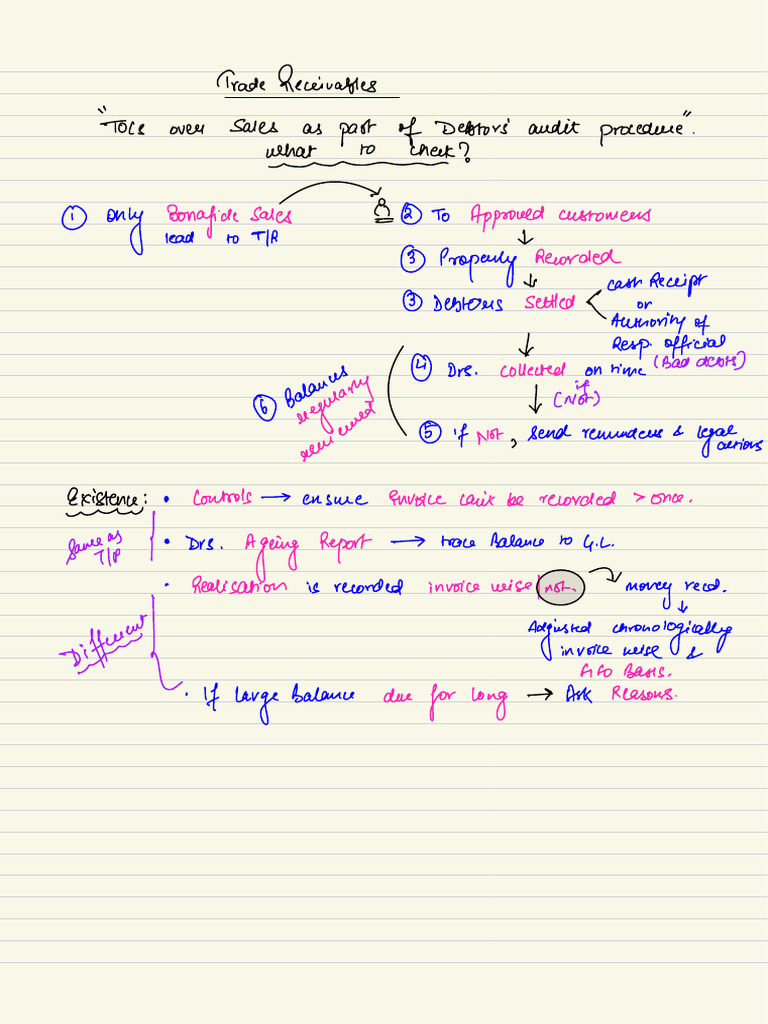 Trade Receivables
"TOCs over Sales as part of Debtors' audit procedure".
what to check?
① Only Bonafide Sales
lead to T/R
② To Approved customers
③ Properly Recorded
③ Debtors Settled
cash Receipt
or
Authority of
Resp. official
(Bad debts)
④ Drs. collected on time
if
(Not)
⑤ if Not, Send reminders & legal
actions
⑥ Balances
regularly
reviewed
Existence: • Controls → ensure Invoice can't be recorded > once.
Same as
T/P
• Drs. Ageing Report → trace Balance to G.L.
• Realisation is recorded invoice wise | not. money recd.
Adjusted chronologically
invoice wise &
FIFO Basis.
Different
• If large Balance due for long → Ask Reasons.